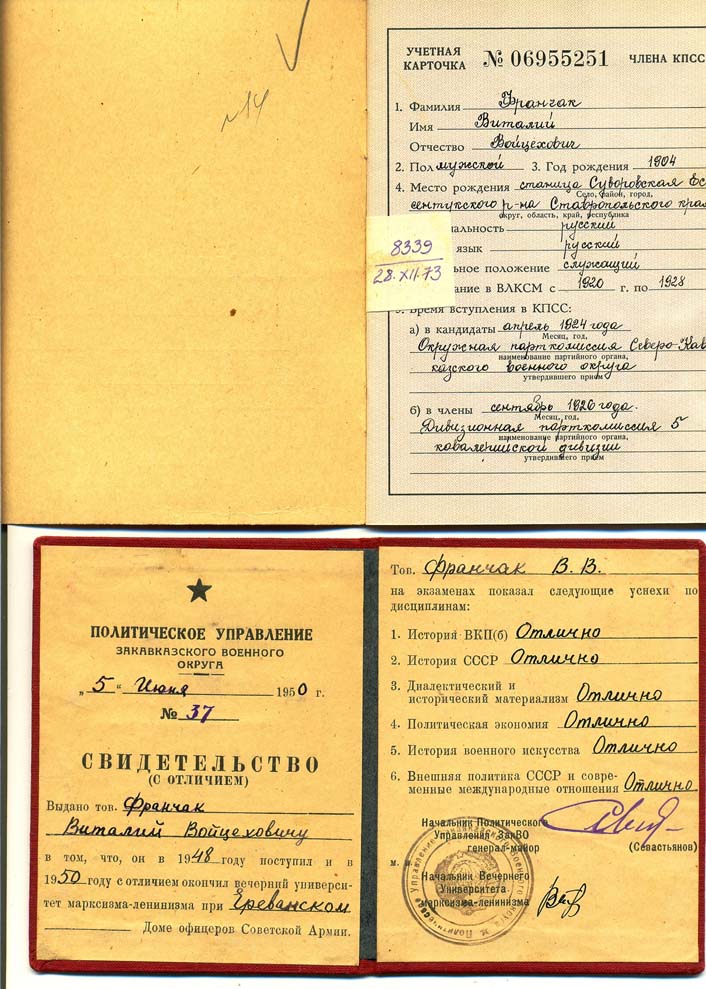 №14
УЧЕТНАЯ
КАРТОЧКА
№ 06955251
ЧЛЕНА КПСС
1. Фамилия Франчак
Имя Виталий
Отчество Войцехович
2. Пол мужской 3. Год рождения 1904
4. Место рождения станица Суворовская Ес
Село, район, город,
сентукского р-на Ставропольского края
округ, область, край, республика
альность русский
язык русский
ьное положение служащий
ание в ВЛКСМ с 1920 г. по 1928
8339
28.XII.73
Время вступления в КПСС:
а) в кандидаты апрель 1924 года
Месяц, год,
Окружная парткомиссия Северо-Кав
наименование партийного органа,
казского военного округа
утвердившего прием
б) в члены сентябрь 1926 года.
Месяц, год,
Дивизионная парткомиссия 5
наименование партийного органа,
кавалерийской дивизии
утвердившего прием
ПОЛИТИЧЕСКОЕ УПРАВЛЕНИЕ
ЗАКАВКАЗСКОГО ВОЕННОГО
ОКРУГА
„5“ Июня 1950 г.
№ 37
СВИДЕТЕЛЬСТВО
(С ОТЛИЧИЕМ)
Выдано тов. Франчак
Виталий Войцеховичу
в том, что, он в 1948 году поступил и в
1950 году с отличием окончил вечерний универси-
тет марксизма-ленинизма при Ереванском
Доме офицеров Советской Армии.
Тов. Франчак В. В.
на экзаменах показал следующие успехи по
дисциплинам:
1. История ВКП(б) Отлично
2. История СССР Отлично
3. Диалектический и
исторический материализм Отлично
4. Политическая экономия Отлично
5. История военного искусства Отлично
6. Внешняя политика СССР и совре-
менные международные отношения Отлично
Начальник Политического
Управления ЗакВО
генерал-майор
(Севастьянов)
м. п.
Начальник Вечернего
Университета
марксизма-ленинизма